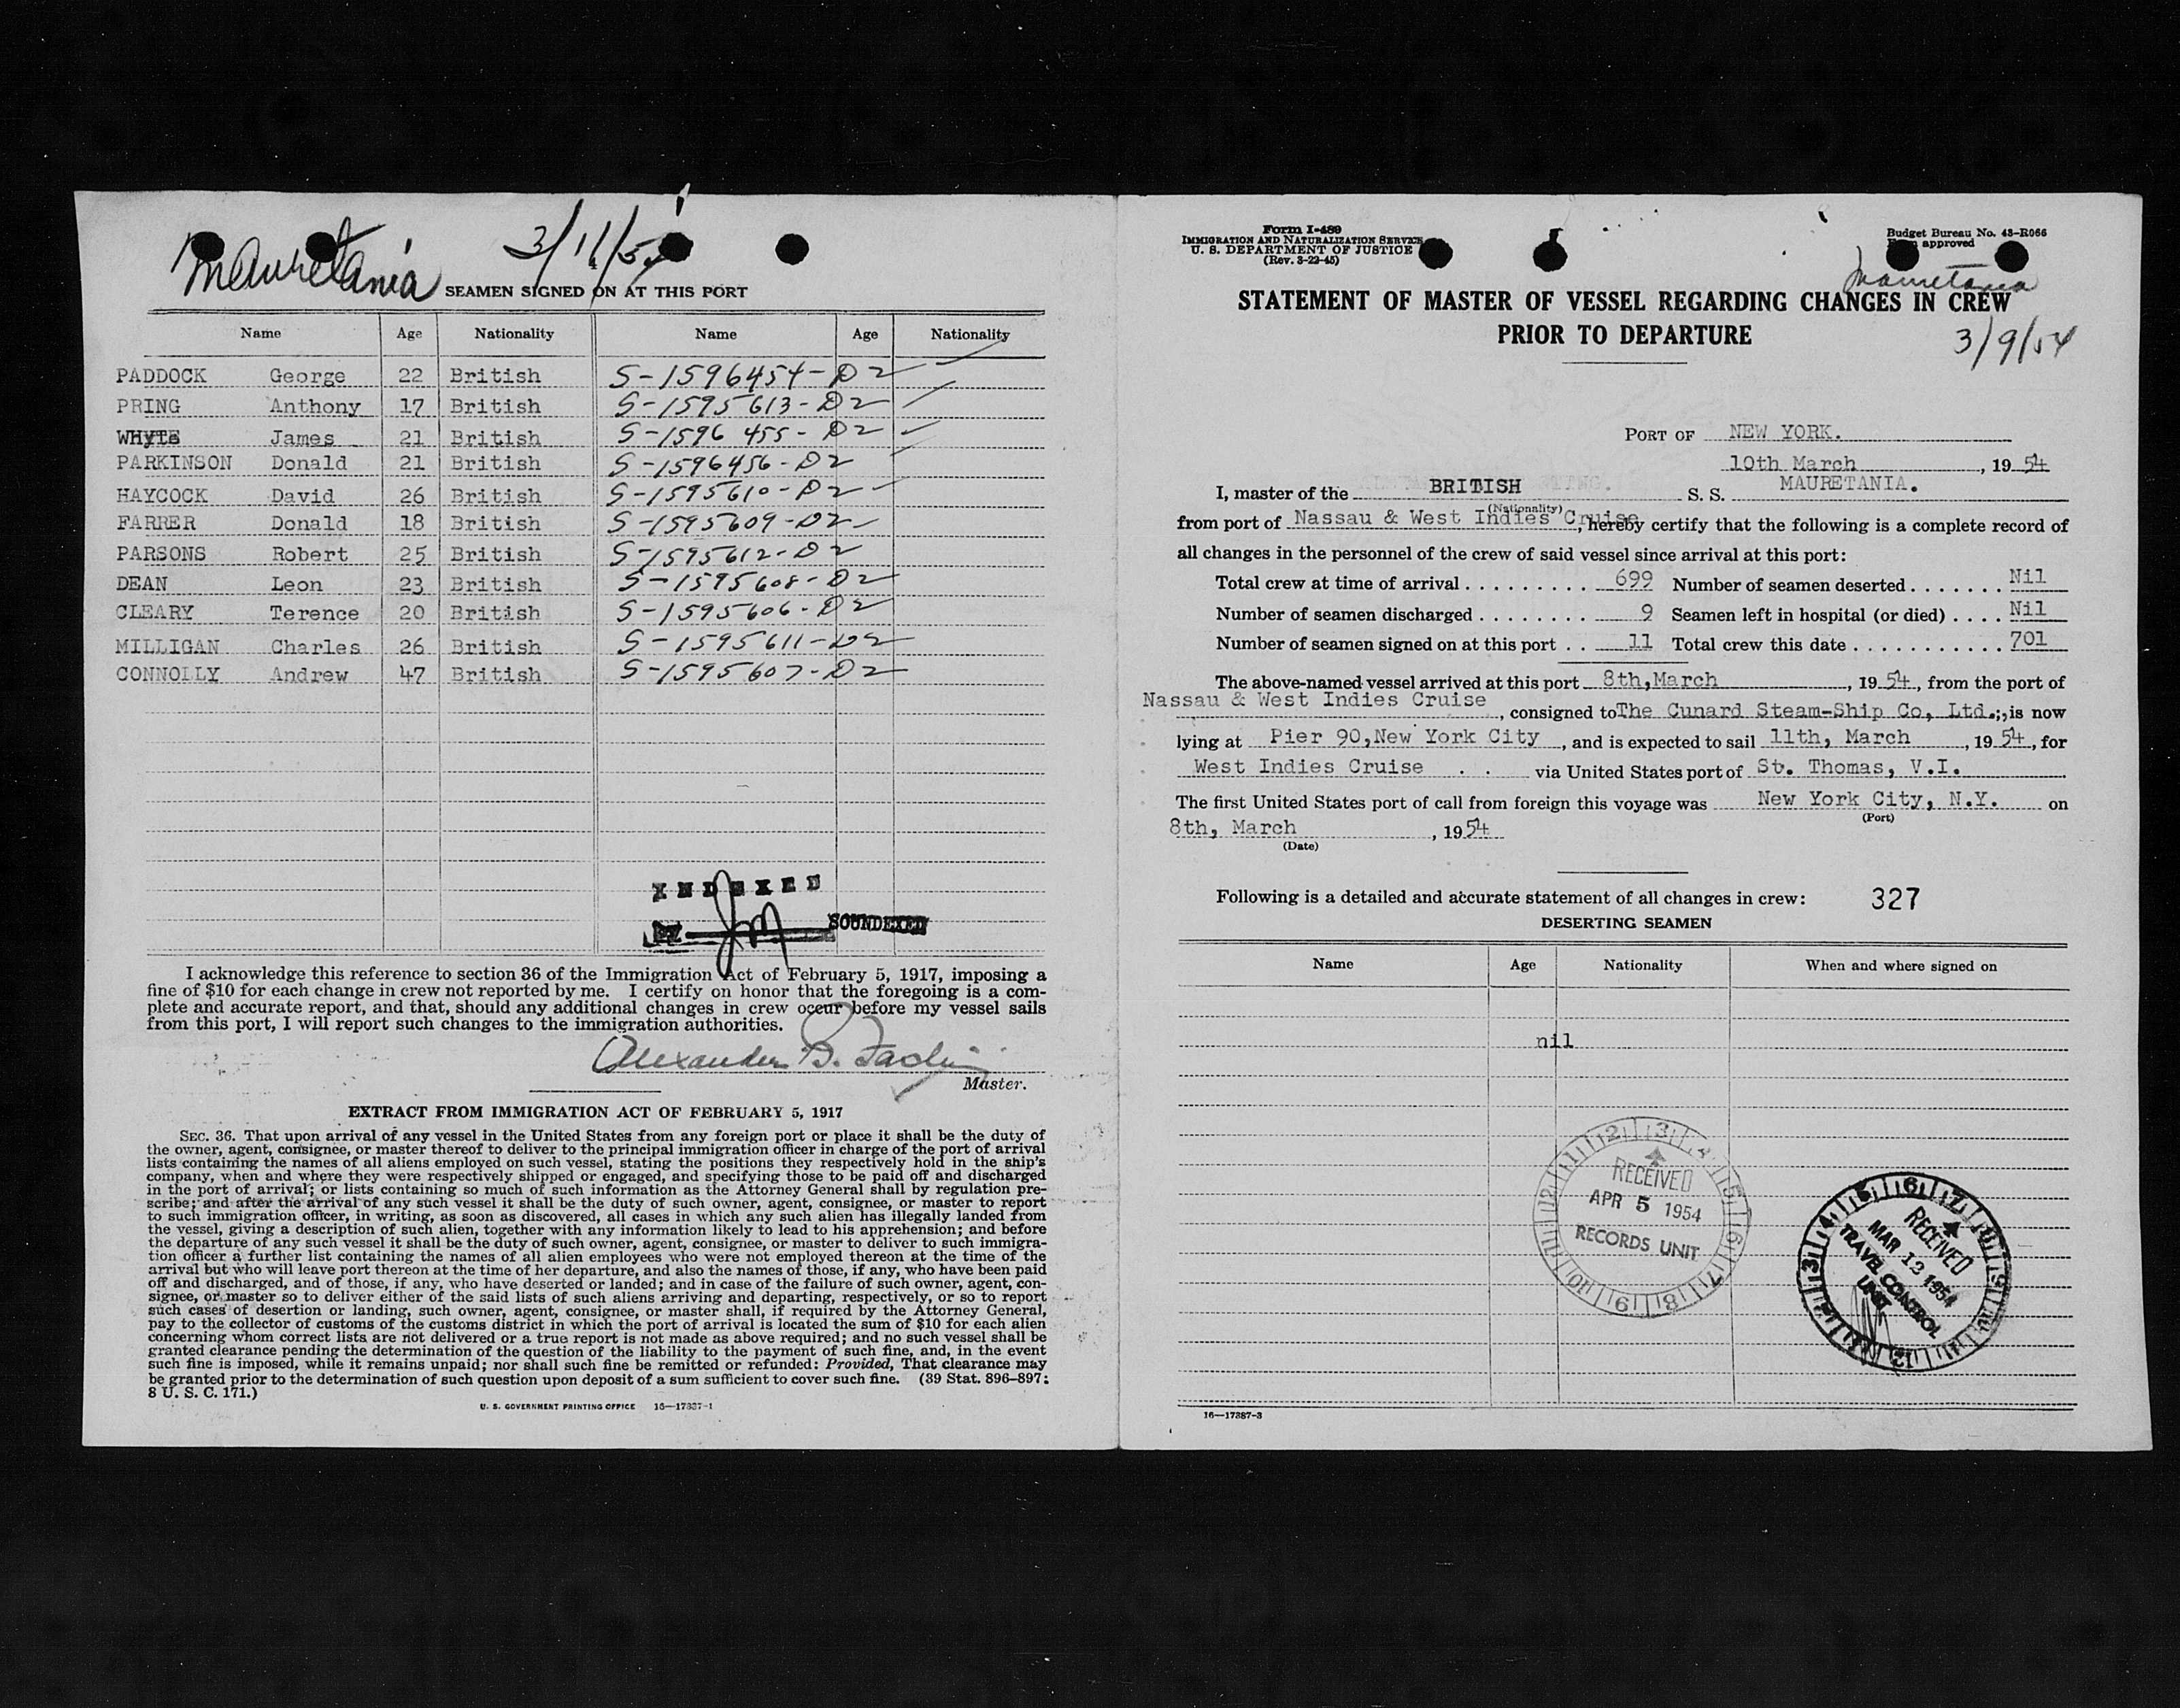 Mauretania 3/11/54
SEAMEN SIGNED ON AT THIS PORT
Name Age Nationality Name Age Nationality
PADDOCK George 22 British S-1596454-D2
PRING Anthony 17 British S-1595613-D2
WHYTE James 21 British S-1596455-D2
PARKINSON Donald 21 British S-1596456-D2
HAYCOCK David 26 British S-1595610-D2
FARRER Donald 18 British S-1595609-D2
PARSONS Robert 25 British S-1595612-D2
DEAN Leon 23 British S-1595608-D2
CLEARY Terence 20 British S-1595606-D2
MILLIGAN Charles 26 British S-1595611-D2
CONNOLLY Andrew 47 British S-1595607-D2
INDEXED
BY JM SOUNDEXED
I acknowledge this reference to section 36 of the Immigration Act of February 5, 1917, imposing a
fine of $10 for each change in crew not reported by me. I certify on honor that the foregoing is a com-
plete and accurate report, and that, should any additional changes in crew occur before my vessel sails
from this port, I will report such changes to the immigration authorities.
Alexander B.
Master.
EXTRACT FROM IMMIGRATION ACT OF FEBRUARY 5, 1917
SEC. 36. That upon arrival of any vessel in the United States from any foreign port or place it shall be the duty of
the owner, agent, consignee, or master thereof to deliver to the principal immigration officer in charge of the port of arrival
lists containing the names of all aliens employed on such vessel, stating the positions they respectively hold in the ship's
company, when and where they were respectively shipped or engaged, and specifying those to be paid off and discharged
in the port of arrival; or lists containing so much of such information as the Attorney General shall by regulation pre-
scribe; and after the arrival of any such vessel it shall be the duty of such owner, agent, consignee, or master to report
to such immigration officer, in writing, as soon as discovered, all cases in which any such alien has illegally landed from
the vessel, giving a description of such alien, together with any information likely to lead to his apprehension; and before
the departure of any such vessel it shall be the duty of such owner, agent, consignee, or master to deliver to such immigra-
tion officer a further list containing the names of all alien employees who were not employed thereon at the time of the
arrival but who will leave port thereon at the time of her departure, and also the names of those, if any, who have been paid
off and discharged, and of those, if any, who have deserted or landed; and in case of the failure of such owner, agent, con-
signee, or master so to deliver either of the said lists of such aliens arriving and departing, respectively, or so to report
such cases of desertion or landing, such owner, agent, consignee, or master shall, if required by the Attorney General,
pay to the collector of customs of the customs district in which the port of arrival is located the sum of $10 for each alien
concerning whom correct lists are not delivered or a true report is not made as above required; and no such vessel shall be
granted clearance pending the determination of the question of the liability to the payment of such fine, and, in the event
such fine is imposed, while it remains unpaid; nor shall such fine be remitted or refunded: Provided, That clearance may
be granted prior to the determination of such question upon deposit of a sum sufficient to cover such fine. (39 Stat. 896-897;
8 U. S. C. 171.)
U. S. GOVERNMENT PRINTING OFFICE 16—17387-1
Form I-489
IMMIGRATION AND NATURALIZATION SERVICE
U. S. DEPARTMENT OF JUSTICE
(Rev. 3-22-45)
Budget Bureau No. 43-R066
Form approved
Mauretania
STATEMENT OF MASTER OF VESSEL REGARDING CHANGES IN CREW
PRIOR TO DEPARTURE
3/9/54
PORT OF NEW YORK.
10th March, 1954
I, master of the BRITISH S. S. MAURETANIA.
(Nationality)
from port of Nassau & West Indies Cruise, hereby certify that the following is a complete record of
all changes in the personnel of the crew of said vessel since arrival at this port:
Total crew at time of arrival . . . . . . . . . . 699 Number of seamen deserted . . . . . . . Nil
Number of seamen discharged . . . . . . . . 9 Seamen left in hospital (or died) . . . . Nil
Number of seamen signed on at this port . . 11 Total crew this date . . . . . . . . . . . 701
The above-named vessel arrived at this port 8th, March, 1954, from the port of
Nassau & West Indies Cruise, consigned to The Cunard Steam-Ship Co, Ltd.; is now
lying at Pier 90, New York City, and is expected to sail 11th, March, 1954, for
West Indies Cruise . . via United States port of St. Thomas, V.I.
The first United States port of call from foreign this voyage was New York City, N.Y. on
(Port)
8th, March, 1954
(Date)
Following is a detailed and accurate statement of all changes in crew: 327
DESERTING SEAMEN
Name Age Nationality When and where signed on
nil
RECEIVED
APR 5 1954
RECORDS UNIT
RECEIVED
MAR 12 1954
TRAVEL CONTROL
UNIT
16—17387-3